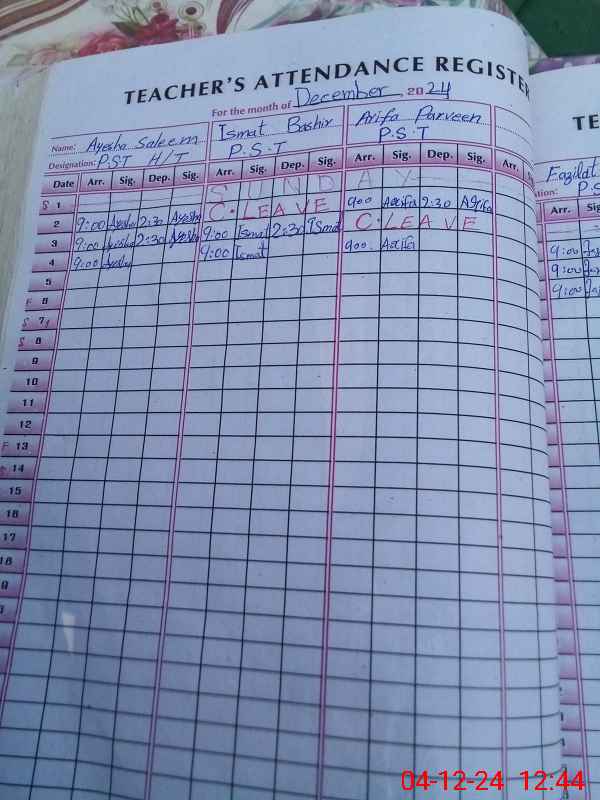 TEACHER'S ATTENDANCE REGISTER
For the month of December 2024
Name: Ayesha Saleem Ismat Bashir Arifa Parveen
Designation: P.ST H/T P.S.T P.S.T
Date Arr. Sig. Dep. Sig. Arr. Sig. Dep. Sig. Arr. Sig. Dep. Sig. Arr.
S 1 SUNDAY
2 9:00 Ayesha 2:30 Ayesha C. LEAVE 900 Aarifa 2:30 Arifa
3 9:00 Ayesha 2:30 Ayesha 9:00 Ismat 2:30 Ismat C. LEAVE
4 9:00 Ayesha 9:00 Ismat 900. Aarifa
5
F 6
S 7
S 8
9
10
11
12
F 13
14
15
16
17
18
9
TE
Fazilat
P.S
Arr. Sig
9:00
9:00
9:00
04-12-24 12:44